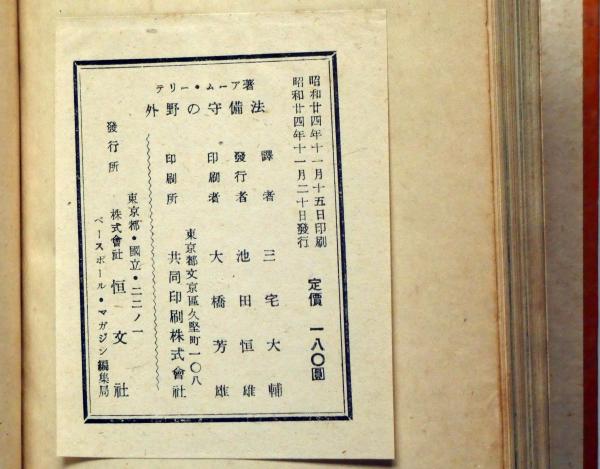 テリー・ムーア著
外野の守備法
昭和廿四年十一月十五日印刷
昭和廿四年十一月二十日發行
定價 一八〇圓
譯者 三宅大輔
發行者 池田恒雄
印刷者 大橋芳雄
東京都文京區久堅町一〇八
印刷所 共同印刷株式會社
發行所
東京都・國立・二二ノ一
株式會社 恒文社
ベースボール・マガジン編集局